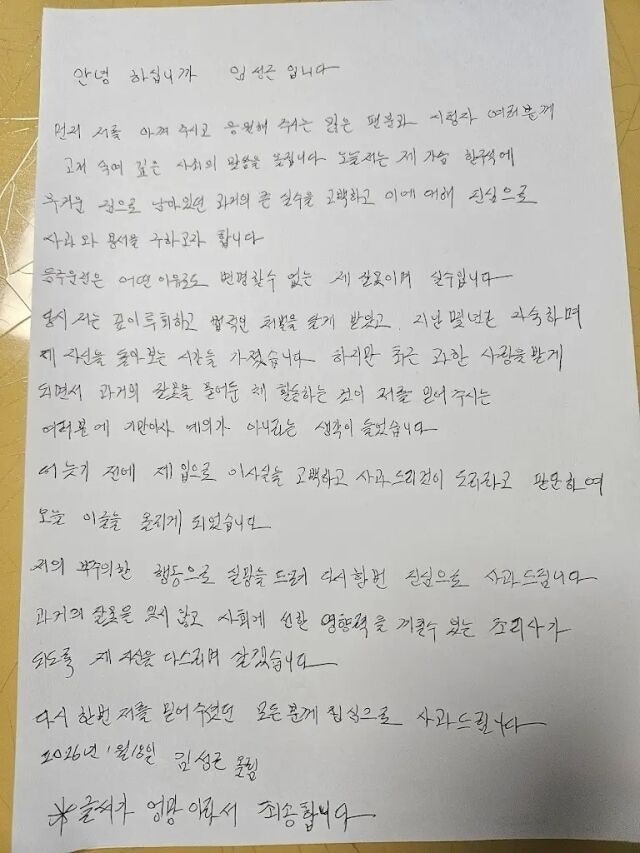 안녕 하십니까 임성근 입니다
먼저 저를 아껴 주시고 응원해 주시는 많은 팬분과 시청자 여러분께
고개 숙여 깊은 사죄의 말씀을 올립니다 오늘 저는 제 가슴 한구석에
무거운 짐으로 남아있던 과거의 큰 실수를 고백하고 이에 대해 진심으로
사과와 용서를 구하고자 합니다
음주운전은 어떤 이유로도 변명할수 없는 제 잘못이며 실수입니다
당시 저는 깊이 후회하고 법적인 처벌을 달게 받았고. 지난 몇년간 자숙하며
제 자신을 돌아보는 시간을 가졌습니다 하지만 최근 과한 사랑을 받게
되면서 과거의 잘못을 묻어둔 채 활동하는 것이 저를 믿어 주시는
여러분에 기만이자 예의가 아니라는 생각이 들었습니다
더 늦기 전에 제 입으로 이사실을 고백하고 사과 드리것이 도리라고 판단하여
오늘 이글을 올리게 되었습니다
저의 부주의한 행동으로 실망을 드려 다시한번 진심으로 사과드립니다
과거의 잘못을 잊지 않고 사회에 선한 영향력을 끼칠수 있는 조리사가
되도록 제 자신을 다스리며 살겠습니다
다시 한번 저를 믿어 주셨던 모든분께 진심으로 사과드립니다
2026년 1월18일 김성근 올림
※글씨가 엉망이라서 죄송합니다